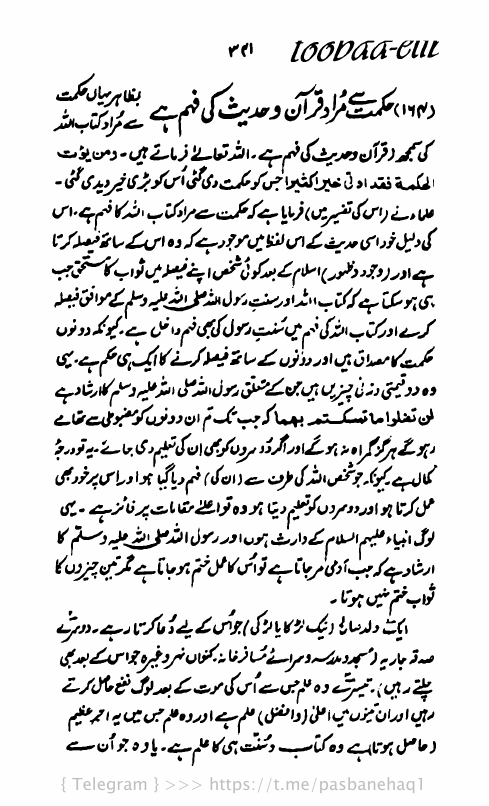 toobaa-elib
۳۲۱
(۱۶۴) حکمت سے مُراد قرآن و حدیث کی فہم ہے بظاہر یہاں حکمت
سے مُراد کتاب اللہ
کی سمجھ (قرآن و حدیث کی فہم ہے۔ اللہ تعالےٰ فرماتے ہیں۔ ومن یؤت
الحکمۃ فقد اوتی خیرا کثیرا جس کو حکمت دی گئی اُس کو بڑی خیر دیدی گئی۔
علماء نے (اس کی تفسیر میں) فرمایا ہے کہ حکمت سے مراد کتاب اللہ کا فہم ہے۔ اس
کی دلیل خود اسی حدیث کے اس لفظ میں موجود ہے کہ وہ اس کے ساتھ فیصلہ کرتا
ہے اور (وجود و ظہور) اسلام کے بعد کوئی شخص اپنے فیصلہ میں ثواب کا مستحق جب
ہی ہو سکتا ہے کہ کتاب اللہ اور سنتِ رسول اللہ صلی اللہ علیہ وسلم کے موافق فیصلہ
کرے اور کتاب اللہ کی فہم میں سُنتِ رسول کی بھی فہم داخل ہے۔ کیونکہ دونوں
حکمت کا مصداق ہیں اور دونوں کے ساتھ فیصلہ کرنے کا ایک ہی حکم ہے۔ یہی
وہ دو قیمتی وزنی چیزیں ہیں جن کے متعلق رسول اللہ صلی اللہ علیہ وسلم کا ارشاد ہے
لن تضلوا ما تمسکتم بھما کہ جب تک تم ان دونوں کو مضبوطی سے تھامے
رہو گے ہرگز گمراہ نہ ہو گے اور اگر دوسروں کو بھی ان کی تعلیم دی جائے۔ یہ تو درجۂ
کمال ہے۔ کیونکہ جو شخص اللہ کی طرف سے (ان کی) فہم دیا گیا ہو اور اس پر خود بھی
عمل کرتا ہو اور دوسروں کو تعلیم دیتا ہو وہ تو اعلےٰ مقامات پر فائز ہے۔ یہی
لوگ انبیاء علیہم السلام کے وارث ہوں اور رسول اللہ صلی اللہ علیہ وسلم کا
ارشاد ہے کہ جب آدمی مر جاتا ہے تو اُس کا عمل ختم ہو جاتا ہے مگر تین چیزوں کا
ثواب ختم نہیں ہوتا۔
ایک ولد صالح (نیک لڑکا یا لڑکی) جو اُس کے لیے دُعا کرتا رہے۔ دوسرے
صدقہ جاریہ (مسجد و مدرسہ و سرائے مُسافر خانہ۔ کنواں نہر وغیرہ جو اس کے بعد بھی
چلتے رہیں)۔ تیسرے وہ علم جس سے اُس کی موت کے بعد لوگ نفع حاصل کرتے
رہیں اور ان تینوں میں اعلیٰ (وافضل) علم ہے اور وہ علم جس میں یہ اجرِ عظیم
(حاصل ہوتا) ہے وہ کتاب و سُنت ہی کا علم ہے۔ یا وہ جو اُن سے
{ Telegram } >>> https://t.me/pasbanehaq1